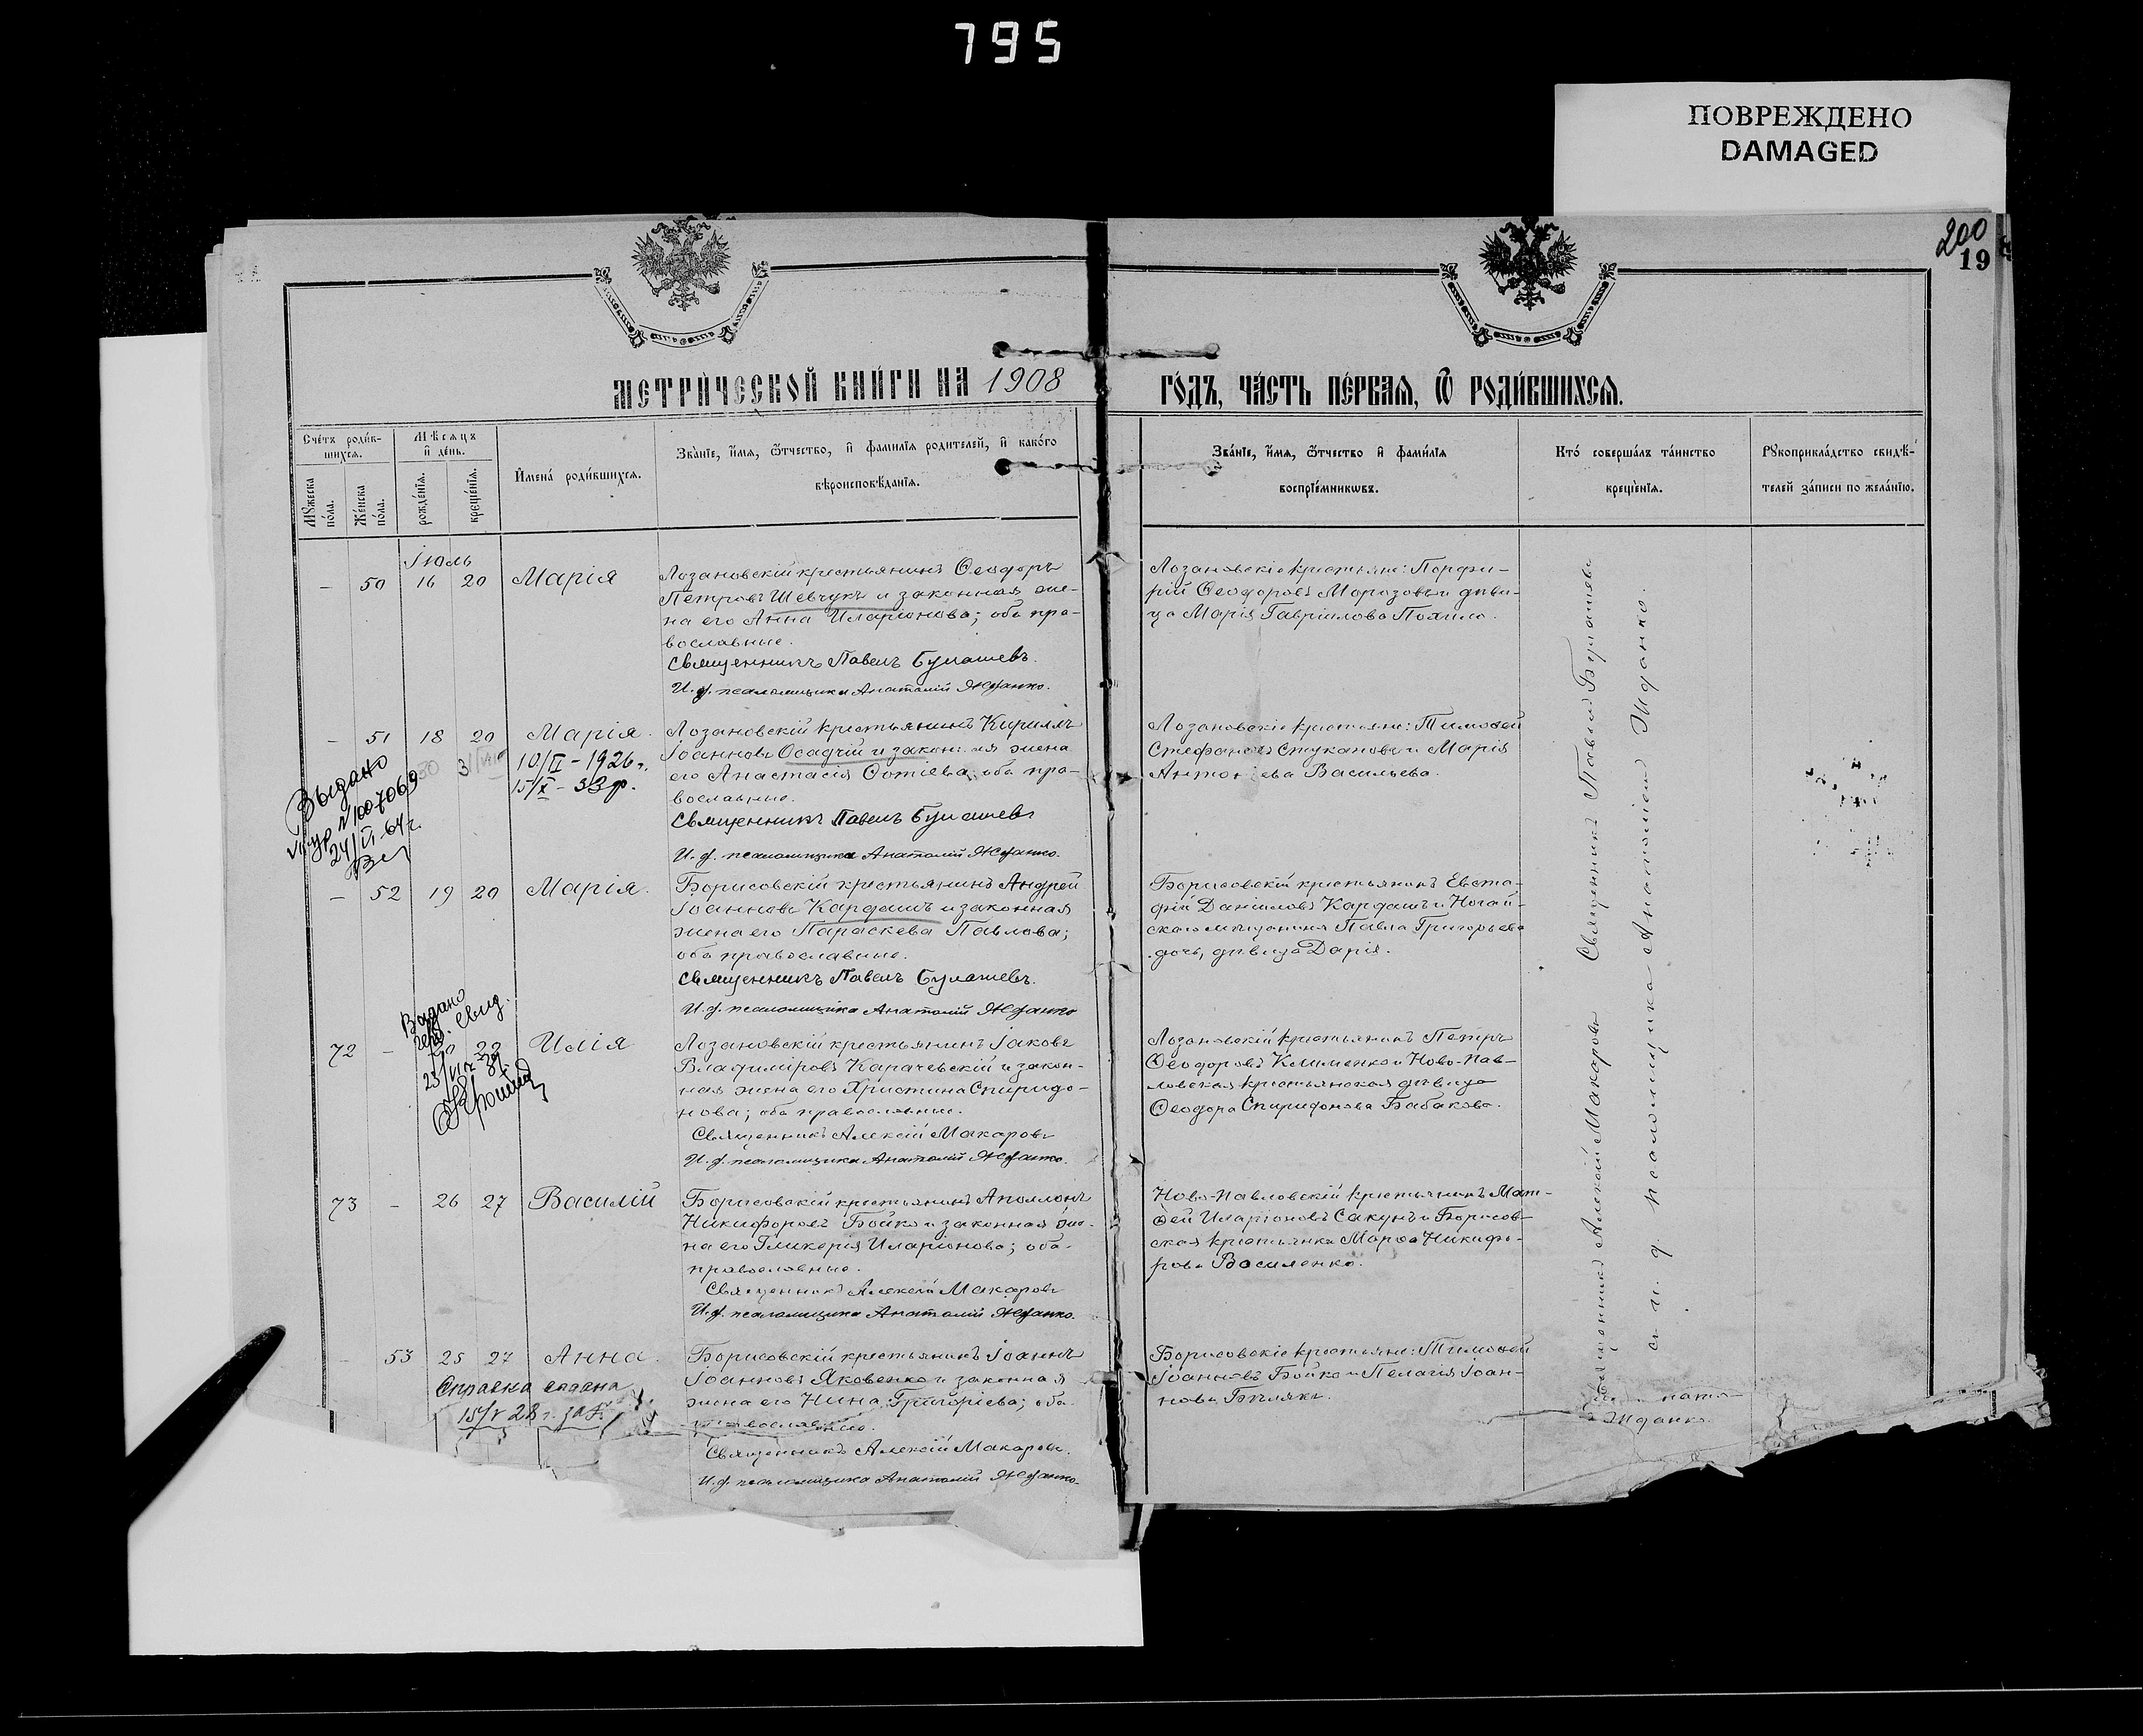 795
ПОВРЕЖДЕНО
DAMAGED
200
19
МЕТРИ́ЧЕСКОЙ КНИ́ГИ НА 1908
ГО́ДЪ, ЧА́СТЬ ПЕ́РВАЯ, Ѿ РОДИ́ВШИХСЯ.
Сче́тъ роди́в-
шихся.
Мꙋжеска по́ла.
Же́нска по́ла.
Мѣсяцъ
и҆ де́нь.
рожде́нїя.
креще́нїя.
И҆мена́ роди́вшихся.
Зва́нїе, и҆́мя, ѻ҆́тчество, и҆ фами́лїя родителей, и҆ како́го
вѣроисповѣ́данїя.
Зва́нїе, и҆́мя, ѻ҆́тчество и҆ фами́лїя
воспрїе́мникѡвъ.
Кто́ соверша́лъ та́инство
креще́нїя.
Рꙋкоприкла́дство свидѣ́-
телей за́писи по жела́нїю.
Іюль
– 50 16 20 Марія
Лозановскій крестьянинъ Ѳеодоръ
Петровъ Шевчукъ и законная же-
на его Анна Иларіонова; оба пра-
вославные.
Священникъ Павелъ Булашевъ.
И. д. псаломщика Анатолій Жданко.
Лозановскіе крестьяне: Порфи-
рій Ѳеодоровъ Морозовъ и дѣви-
ца Марія Гавріилова Похило.
– 51 18 20 Марія.
10/II – 1926 г.
15/X – 33 р.
Лозановскій крестьянинъ Кириллъ
Іоанновъ Осадчій и законная жена
его Анастасія Фотіева, оба пра-
вославные.
Священникъ Павелъ Булашевъ
И. д. псаломщика Анатолій Жданко.
Лозановскіе крестьяне: Тимоѳей
Стефановъ Стукановъ и Марія
Антоніева Васильева.
Выдано
№ 1007069
24/VI-64 г.
– 52 19 20 Марія.
Борисовскій крестьянинъ Андрей
Іоанновъ Кардашъ и законная
жена его Параскева Павлова;
оба православные.
Священникъ Павелъ Булашевъ.
И. д. псаломщика Анатолій Жданко
Борисовскій крестьянинъ Евста-
фій Даніиловъ Кардашъ и Ногай-
скаго мѣщанина Павла Григорьева
дочь, дѣвица Дарія.
Выдано
свид.
72 – Илія
Лозановскій крестьянинъ Іаковъ
Владиміровъ Карачевскій и закон-
ная жена его Христина Спиридо-
нова; оба православные.
Священникъ Алексій Макаровъ
И. д. псаломщика Анатолій Жданко.
Лозановскій крестьянинъ Петръ
Ѳеодоровъ Клименко и Ново-Пав-
ловская крестьянская дѣвица
Ѳеодора Спиридонова Бабакова.
73 – 26 27 Василій
Борисовскій крестьянинъ Аполлонъ
Никифоровъ Бойко и законная же-
на его Гликерія Иларіонова; оба
православные.
Священникъ Алексій Макаровъ
И. д. псаломщика Анатолій Жданко.
Ново-Павловскій крестьянинъ Мат-
ѳей Иларіоновъ Сакунъ и Борисов-
ская крестьянка Марѳа Никифо-
рова Василенко.
53 25 27 Анна.
Справка выдана
15/V 28 г.
Борисовскій крестьянинъ Іоаннъ
Іоанновъ Яковенко и законная
жена его Нина Григоріева; оба
православные.
Священникъ Алексій Макаровъ.
И. д. псаломщика Анатолій Жданко.
Борисовскіе крестьяне: Тимоѳей
Іоанновъ Бойко и Пелагія Іоан-
нова Бѣляки.
Священникъ Алексій Макаровъ Священникъ Павелъ Булашевъ
съ и. д. псаломщика Анатоліемъ Жданко.
Жданко.